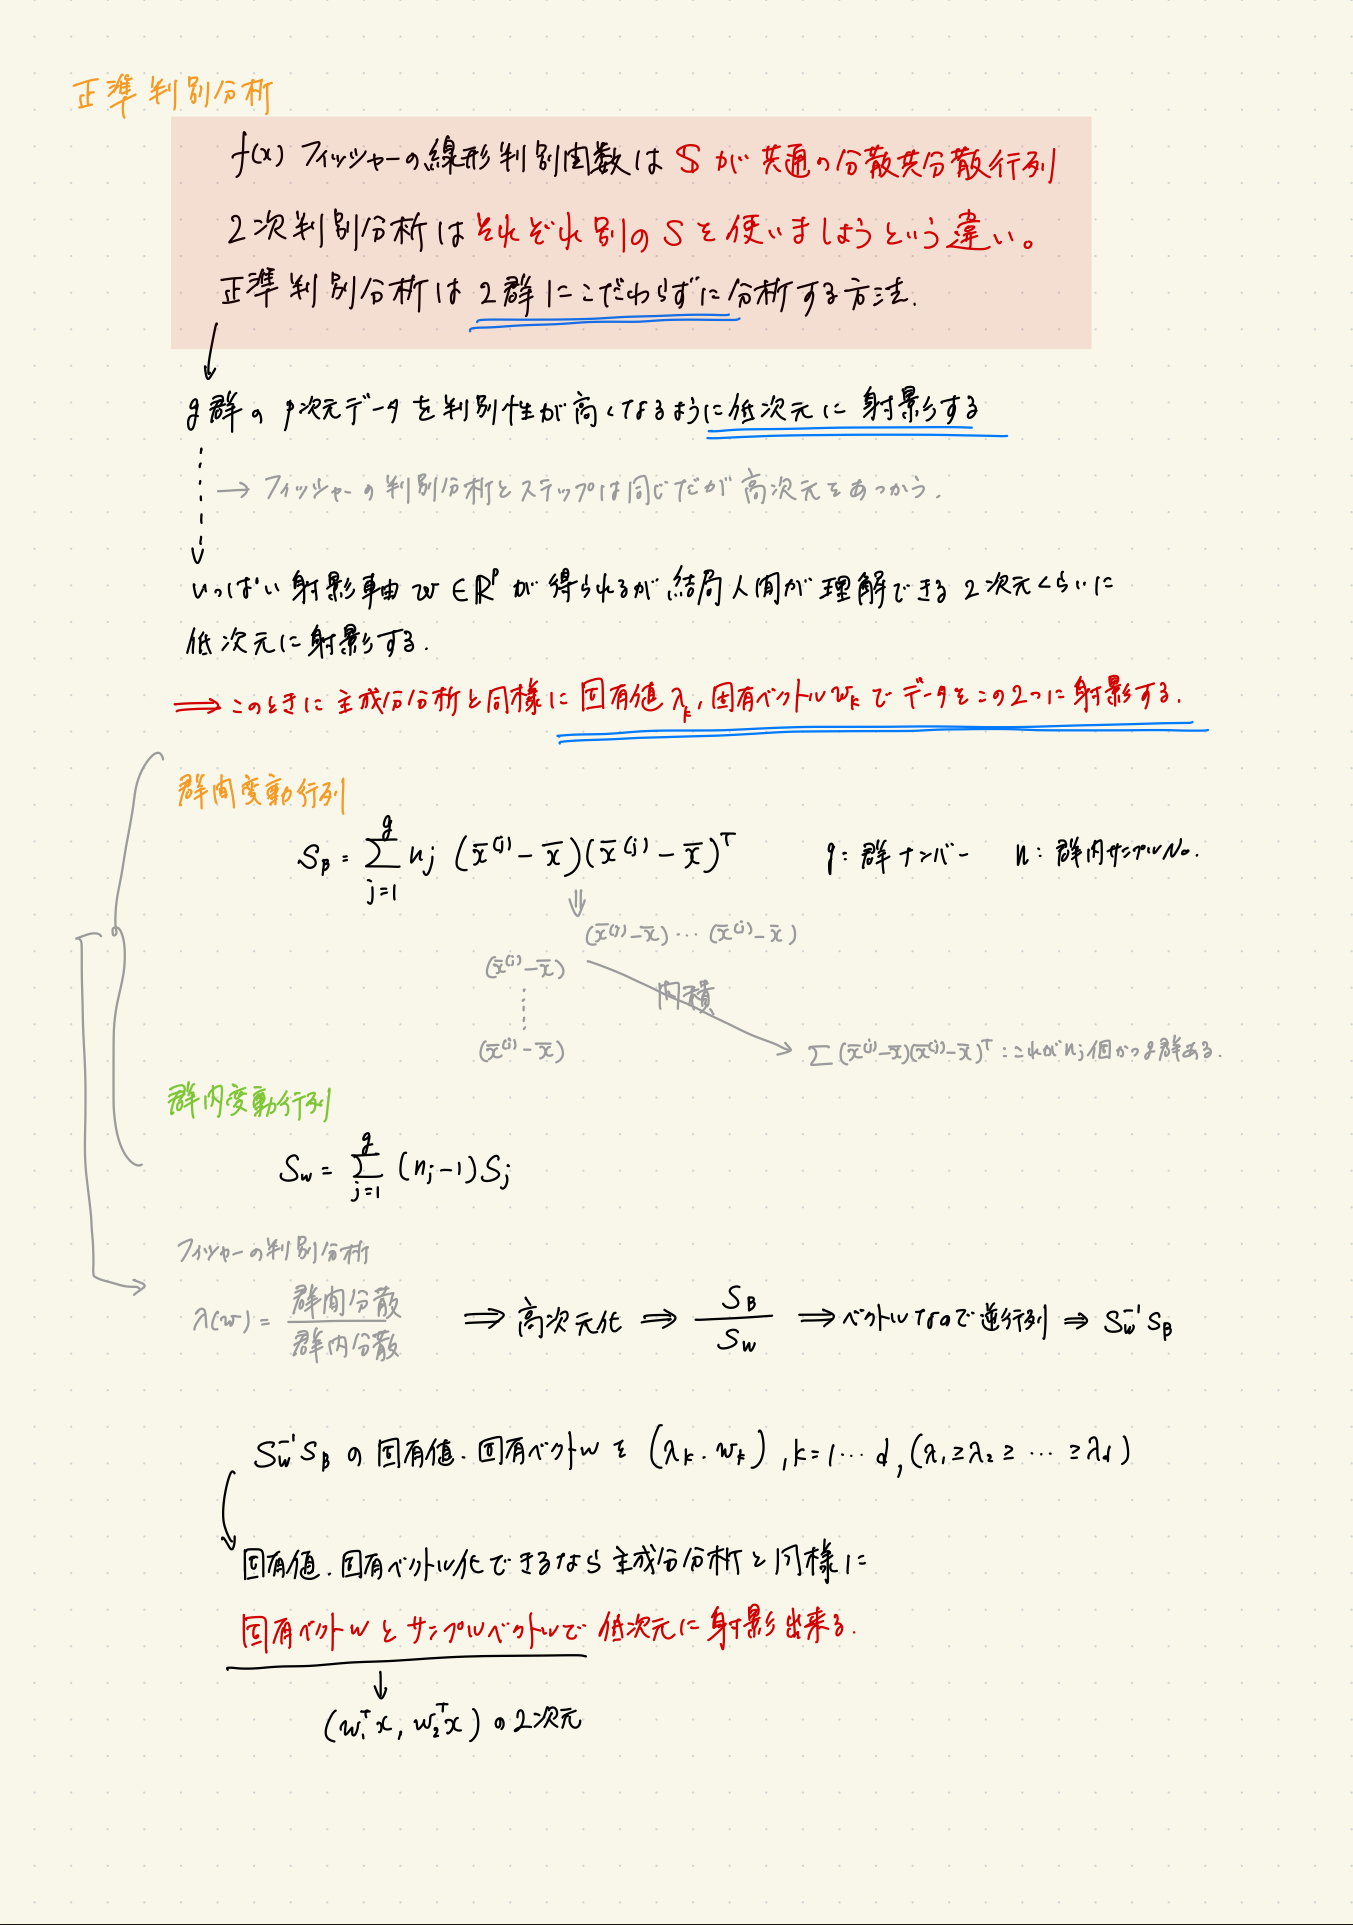 正準判別分析
f(x) フィッシャーの線形判別関数は S が共通の分散共分散行列
2次判別分析はそれぞれ別のSを使いましょうという違い。
正準判別分析は2群にこだわらずに分析する方法.
g群の p次元データを判別性が高くなるように低次元に射影する
→ フィッシャーの判別分析とステップは同じだが高次元をあつかう.
いっぱい射影軸 w ∈ ℝᵖ が得られるが結局人間が理解できる2次元くらいに
低次元に射影する.
⇒ このときに主成分分析と同様に固有値 λₖ, 固有ベクトル wₖ でデータをこの2つに射影する.
群間変動行列
S_B = Σ_{j=1}^{g} n_j (x̄^{(j)} − x̄)(x̄^{(j)} − x̄)^T g: 群ナンバー n: 群内サンプルNo.
⇓
(x̄^{(j)} − x̄) ⋯ (x̄^{(j)} − x̄)
(x̄^{(j)} − x̄)
⋮ 内積
(x̄^{(j)} − x̄) Σ (x̄^{(j)} − x̄)(x̄^{(j)} − x̄)^T : これがn_j個かつg群ある.
群内変動行列
S_w = Σ_{j=1}^{g} (n_j − 1) S_j
フィッシャーの判別分析
λ(w) = 群間分散 / 群内分散 ⇒ 高次元化 ⇒ S_B / S_w ⇒ ベクトルなので逆行列 ⇒ S_w^{-1} S_B
S_w^{-1} S_B の固有値. 固有ベクトルを (λₖ. wₖ), k = 1 ⋯ d, (λ₁ ≥ λ₂ ≥ ⋯ ≥ λ_d)
固有値. 固有ベクトル化できるなら主成分分析と同様に
固有ベクトルとサンプルベクトルで低次元に射影出来る.
↓
(w₁^T x, w₂^T x) の2次元